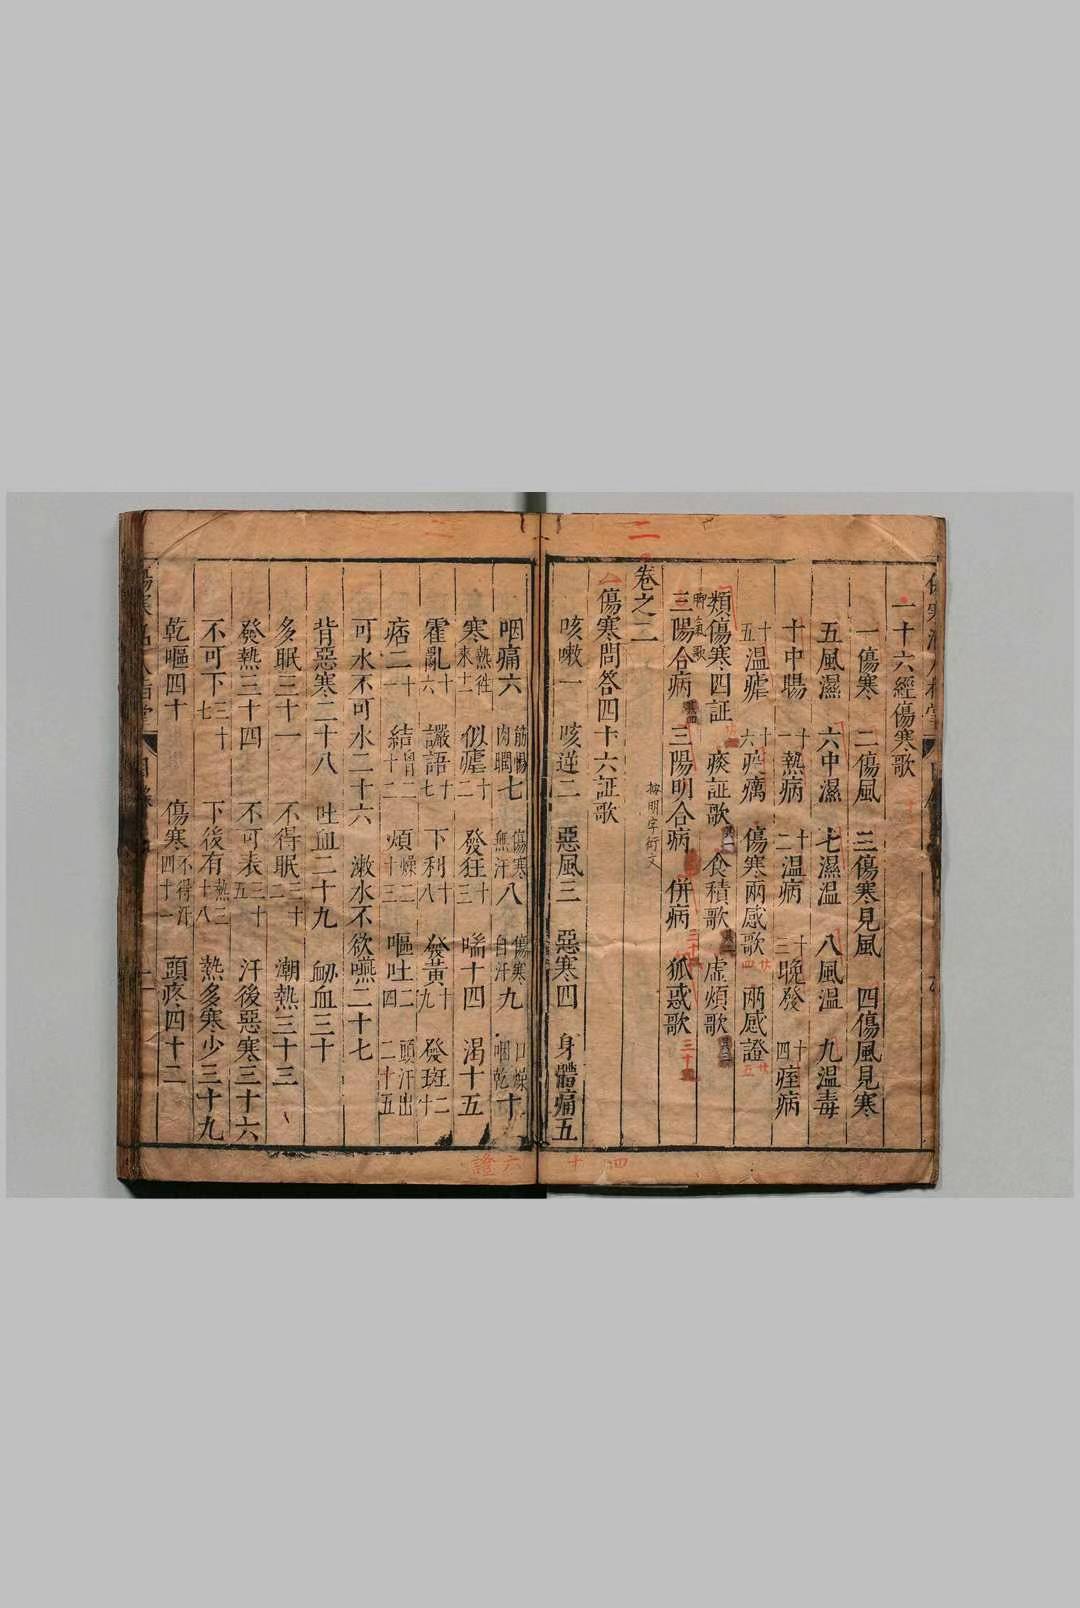 一十六經傷寒歌
一傷寒 二傷風 三傷寒見風 四傷風見寒
五風濕 六中濕 七濕温 八風温 九温毒
十中暍 十一熱病 十二温病 十三晚發 十四痓病
十五温瘧 十六疫癘 傷寒兩感歌 廿四 兩感證 廿五
類傷寒四証 痰証歌 其一 食積歌 其二 虛煩歌 其三
脚氣歌 其四
三陽合病 三陽明合病 併病 三十四 狐惑歌 三十五
按明字衍文
二
卷之二
傷寒問答四十六証歌
咳嗽一 咳逆二 惡風三 惡寒四 身體痛五
四十六證
咽痛六 筋惕肉瞤七 傷寒無汗八 傷寒自汗九 口燥咽乾十
寒熱徃來十一 似瘧十二 發狂十三 喘十四 渴十五
霍亂十六 讝語十七 下利十八 發黃十九 發斑二十
痞二十一 結胷二十二 煩燥二十三 嘔吐二十四 頭汗出二十五
可水不可水二十六 漱水不欲嚥二十七
背惡寒二十八 吐血二十九 衂血三十
多眠三十一 不得眠三十二 潮熱三十三
發熱三十四 不可表三十五 汗後惡寒三十六
不可下三十七 下後有熱三十八 熱多寒少三十九
乾嘔四十 傷寒不得汗四十一 頭疼四十二